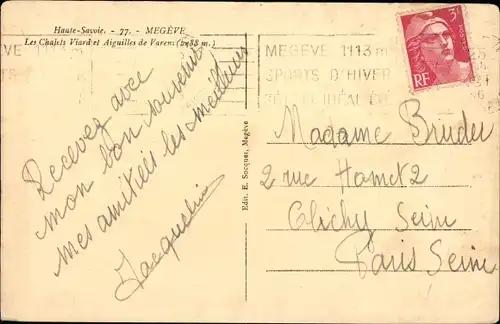 Haute-Savoie. - 77. - MEGÈVE
Les Chalets Viard et Aiguilles de Varens (2488 m.)
MEGÈVE 1113 m
SPORTS D'HIVER
IDÉAL
3F
RF
Recevez avec
mon bon souvenir
mes amitiés les meilleures
Jacqueline
Edit. E. Socquet, Megève
Madame Bruder
2 rue Hamet 2
Clichy Seine
Paris Seine